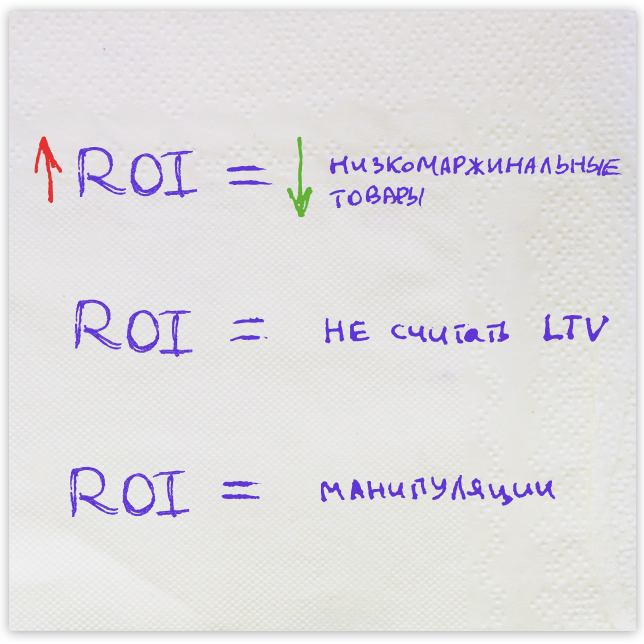 ↑ ROI = ↓ НИЗКОМАРЖИНАЛЬНЫЕ
ТОВАРЫ
ROI = НЕ СЧИТАТЬ LTV
ROI = МАНИПУЛЯЦИИ